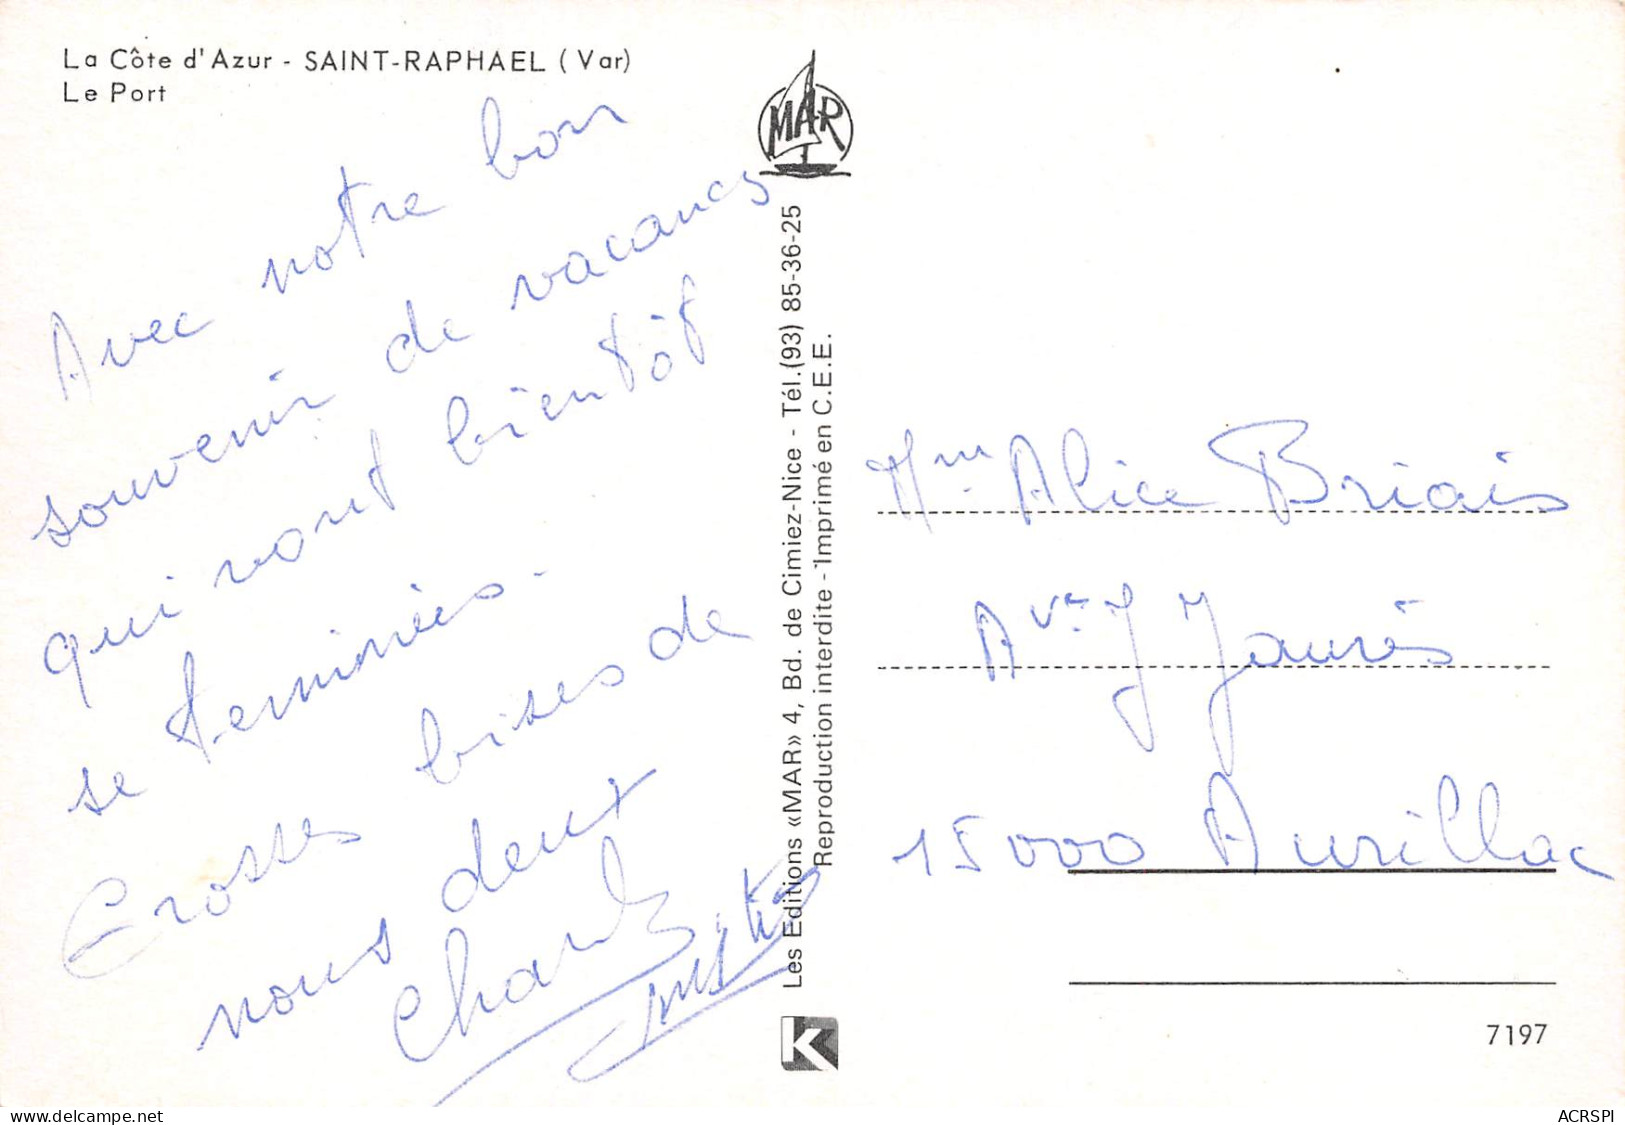 La Côte d'Azur - SAINT-RAPHAEL (Var)
Le Port
MAR
Avec notre bon
souvenir de vacances
qui vont bientôt
se terminées.
Grosses bises de
nous deux
Charles
Les Editions «MAR» 4, Bd. de Cimiez-Nice - Tél.(93) 85-36-25
Reproduction interdite - Imprimé en C.E.E.
K
Mm. Alice Briais
Ave J Jaurès
15000 Aurillac
7197
www.delcampe.net
ACRSPI